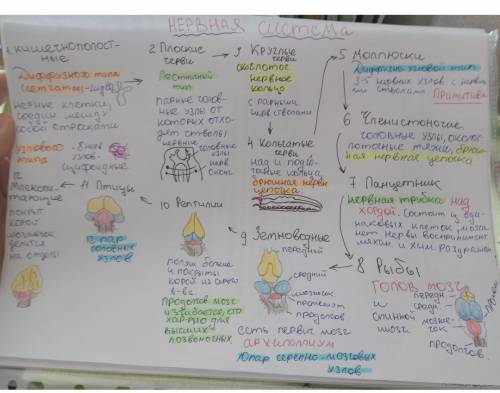 НЕРВНАЯ СИСТЕМА
1 КИШЕЧНОПОЛОСТ-
НЫЕ
Диффузного типа
(сетчатое)
нервные клетки,
соедин между
собой отростками
Узлового
типа
- 8 нерв
узлов.
сцифоидные
2 Плоские
черви
Лестничный
тип
парные голов-
ные узлы от
которых отхо-
дят стволы
нервные
головные
узлы
нерв
оконч.
3 Круглые
черви
окологлот
нервное
кольцо
с парными
нерв стволами
4 Кольчатые
черви
над и подгло-
точные кольца,
брюшная нервн
цепочка
5 Моллюски
3-5 нервных узлов с нервн
ми стволами
Примитивн
6 Членистоногие
головные узлы, окологл
лоточные тяжи, брюш-
ная нервная цепочка
7 Ланцетник
нервная трубка над
хордой. Состоит из оди-
наковых клеток, мозга
нет. Нервы воспринимают
механ и хим. раздраж
8 Рыбы
ГОЛОВ МОЗГ
и
спинной
мозг
передн.
средн.
мозже-
чок
продолгов.
9 Земноводные
передний
средний
мозжечок
промежут
продолгов
есть первич мозг
архипаллиум
10 пар черепно-мозговых
узлов
10 Рептилии
полуш больше
и покрыты
корой из серого
в-ва.
Продолгов мозг
изгибается, что
хар-рно для
высших
позвоночных
11 Птицы
12 пар
головных
узлов
12
Млекопи-
тающие
покрыт
корой
мозжечок
делится
на отделы